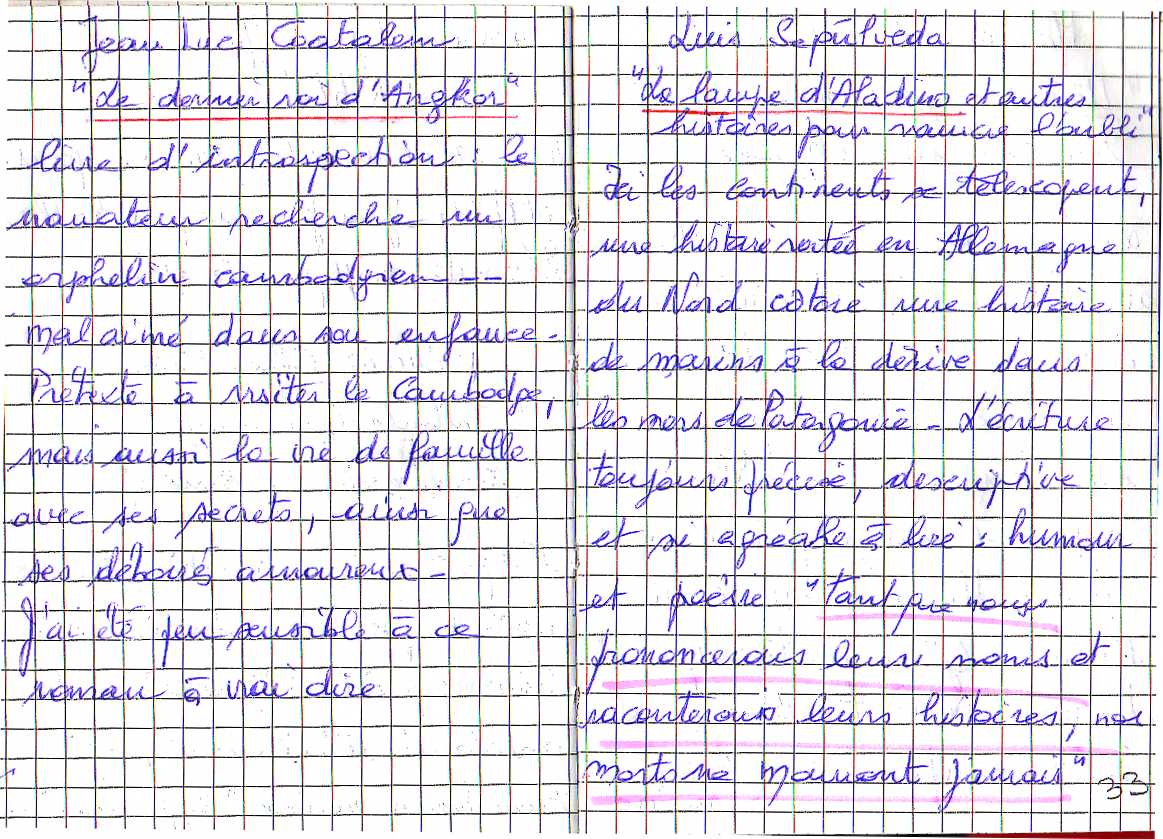 Jean Luc Coatalem
"Le dernier roi d'Angkor"
livre d'introspection : le
narrateur recherche un
orphelin cambodgien ---
mal aimé dans son enfance -
Prétexte à visiter le Cambodge,
mais aussi la vie de famille
avec ses secrets, ainsi que
ses déboires amoureux -
J'ai été peu sensible à ce
roman à vrai dire
Luis Sepúlveda
"La lampe d'Aladino et autres
histoires pour vaincre l'oubli"
Ici les continents se télescopent,
une histoire en Allemagne
du Nord cotoie une histoire
de marins à la dérive dans
les mers de Patagonie - L'écriture
toujours précise, descriptive
et si agréable à lire : humour
et poésie "tant que nous
prononcerons leurs noms et
raconterons leurs histoires, nos
morts ne mourront jamais"
33